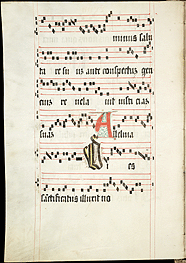 minus salu
ta re su us ante conspectum gen
cium reve la uit iusti cias
suas Alleluia
Di es
sanctificatus illuxit no